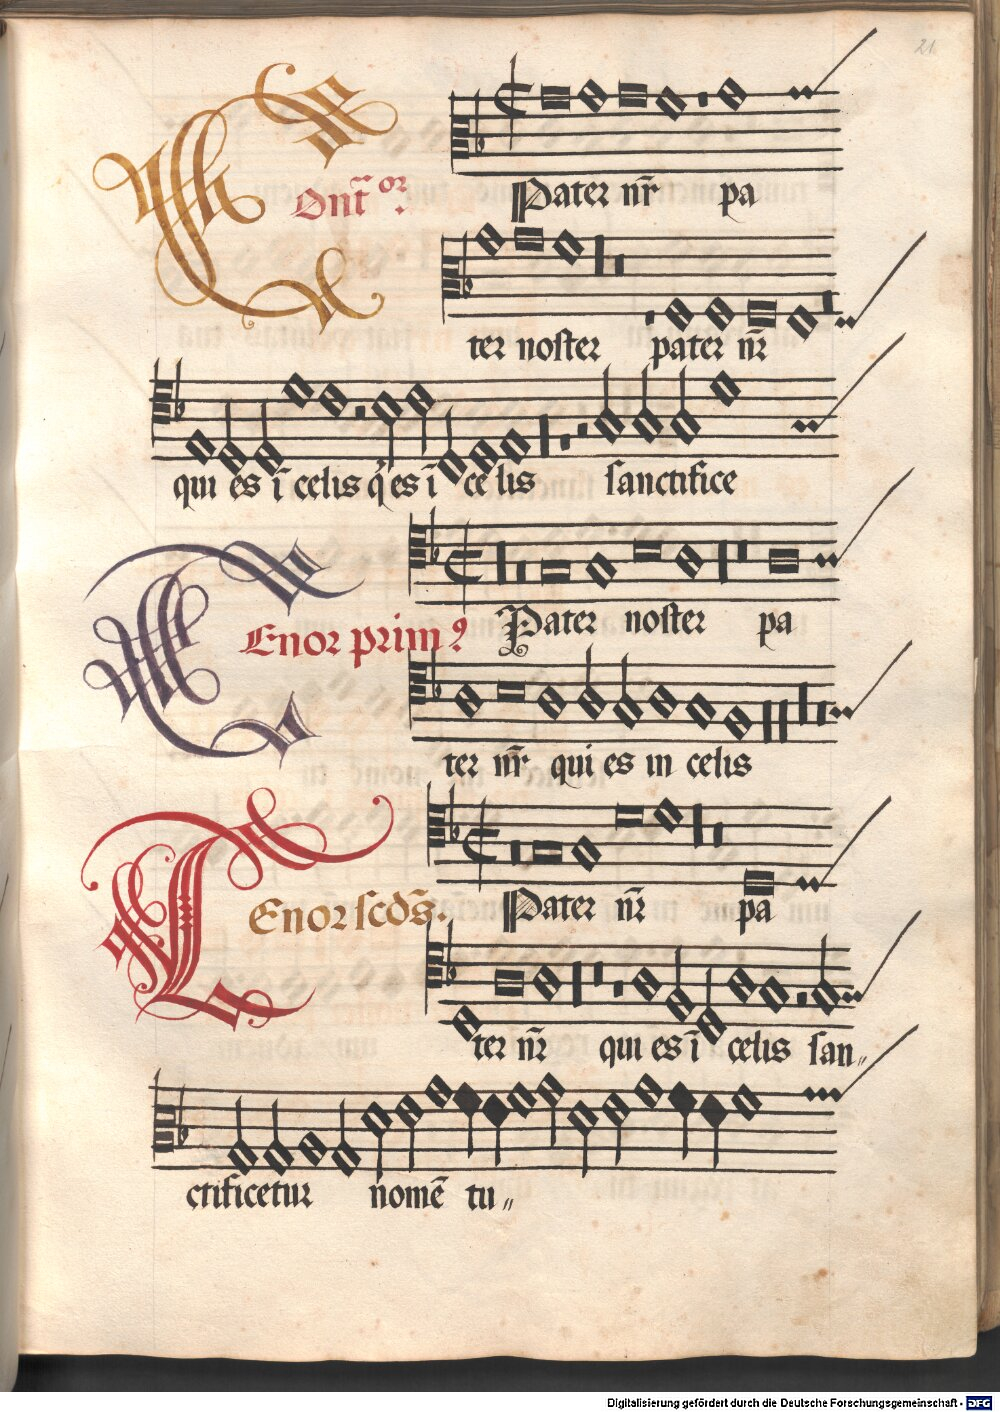 21
Contᵃ oꝛ.
Pater nr̄ pa
ter noster pater nr̄
qui es ī celis q̇ es ī celis sanctifice
Tenor primꝰ
Pater noster pa
ter nr̄ qui es in celis
Tenor scd̄s.
Pater nr̄ pa
ter nr̄ qui es ī celis san〃
ctificetur nomē tu〃
Digitalisierung gefördert durch die Deutsche Forschungsgemeinschaft - DFG